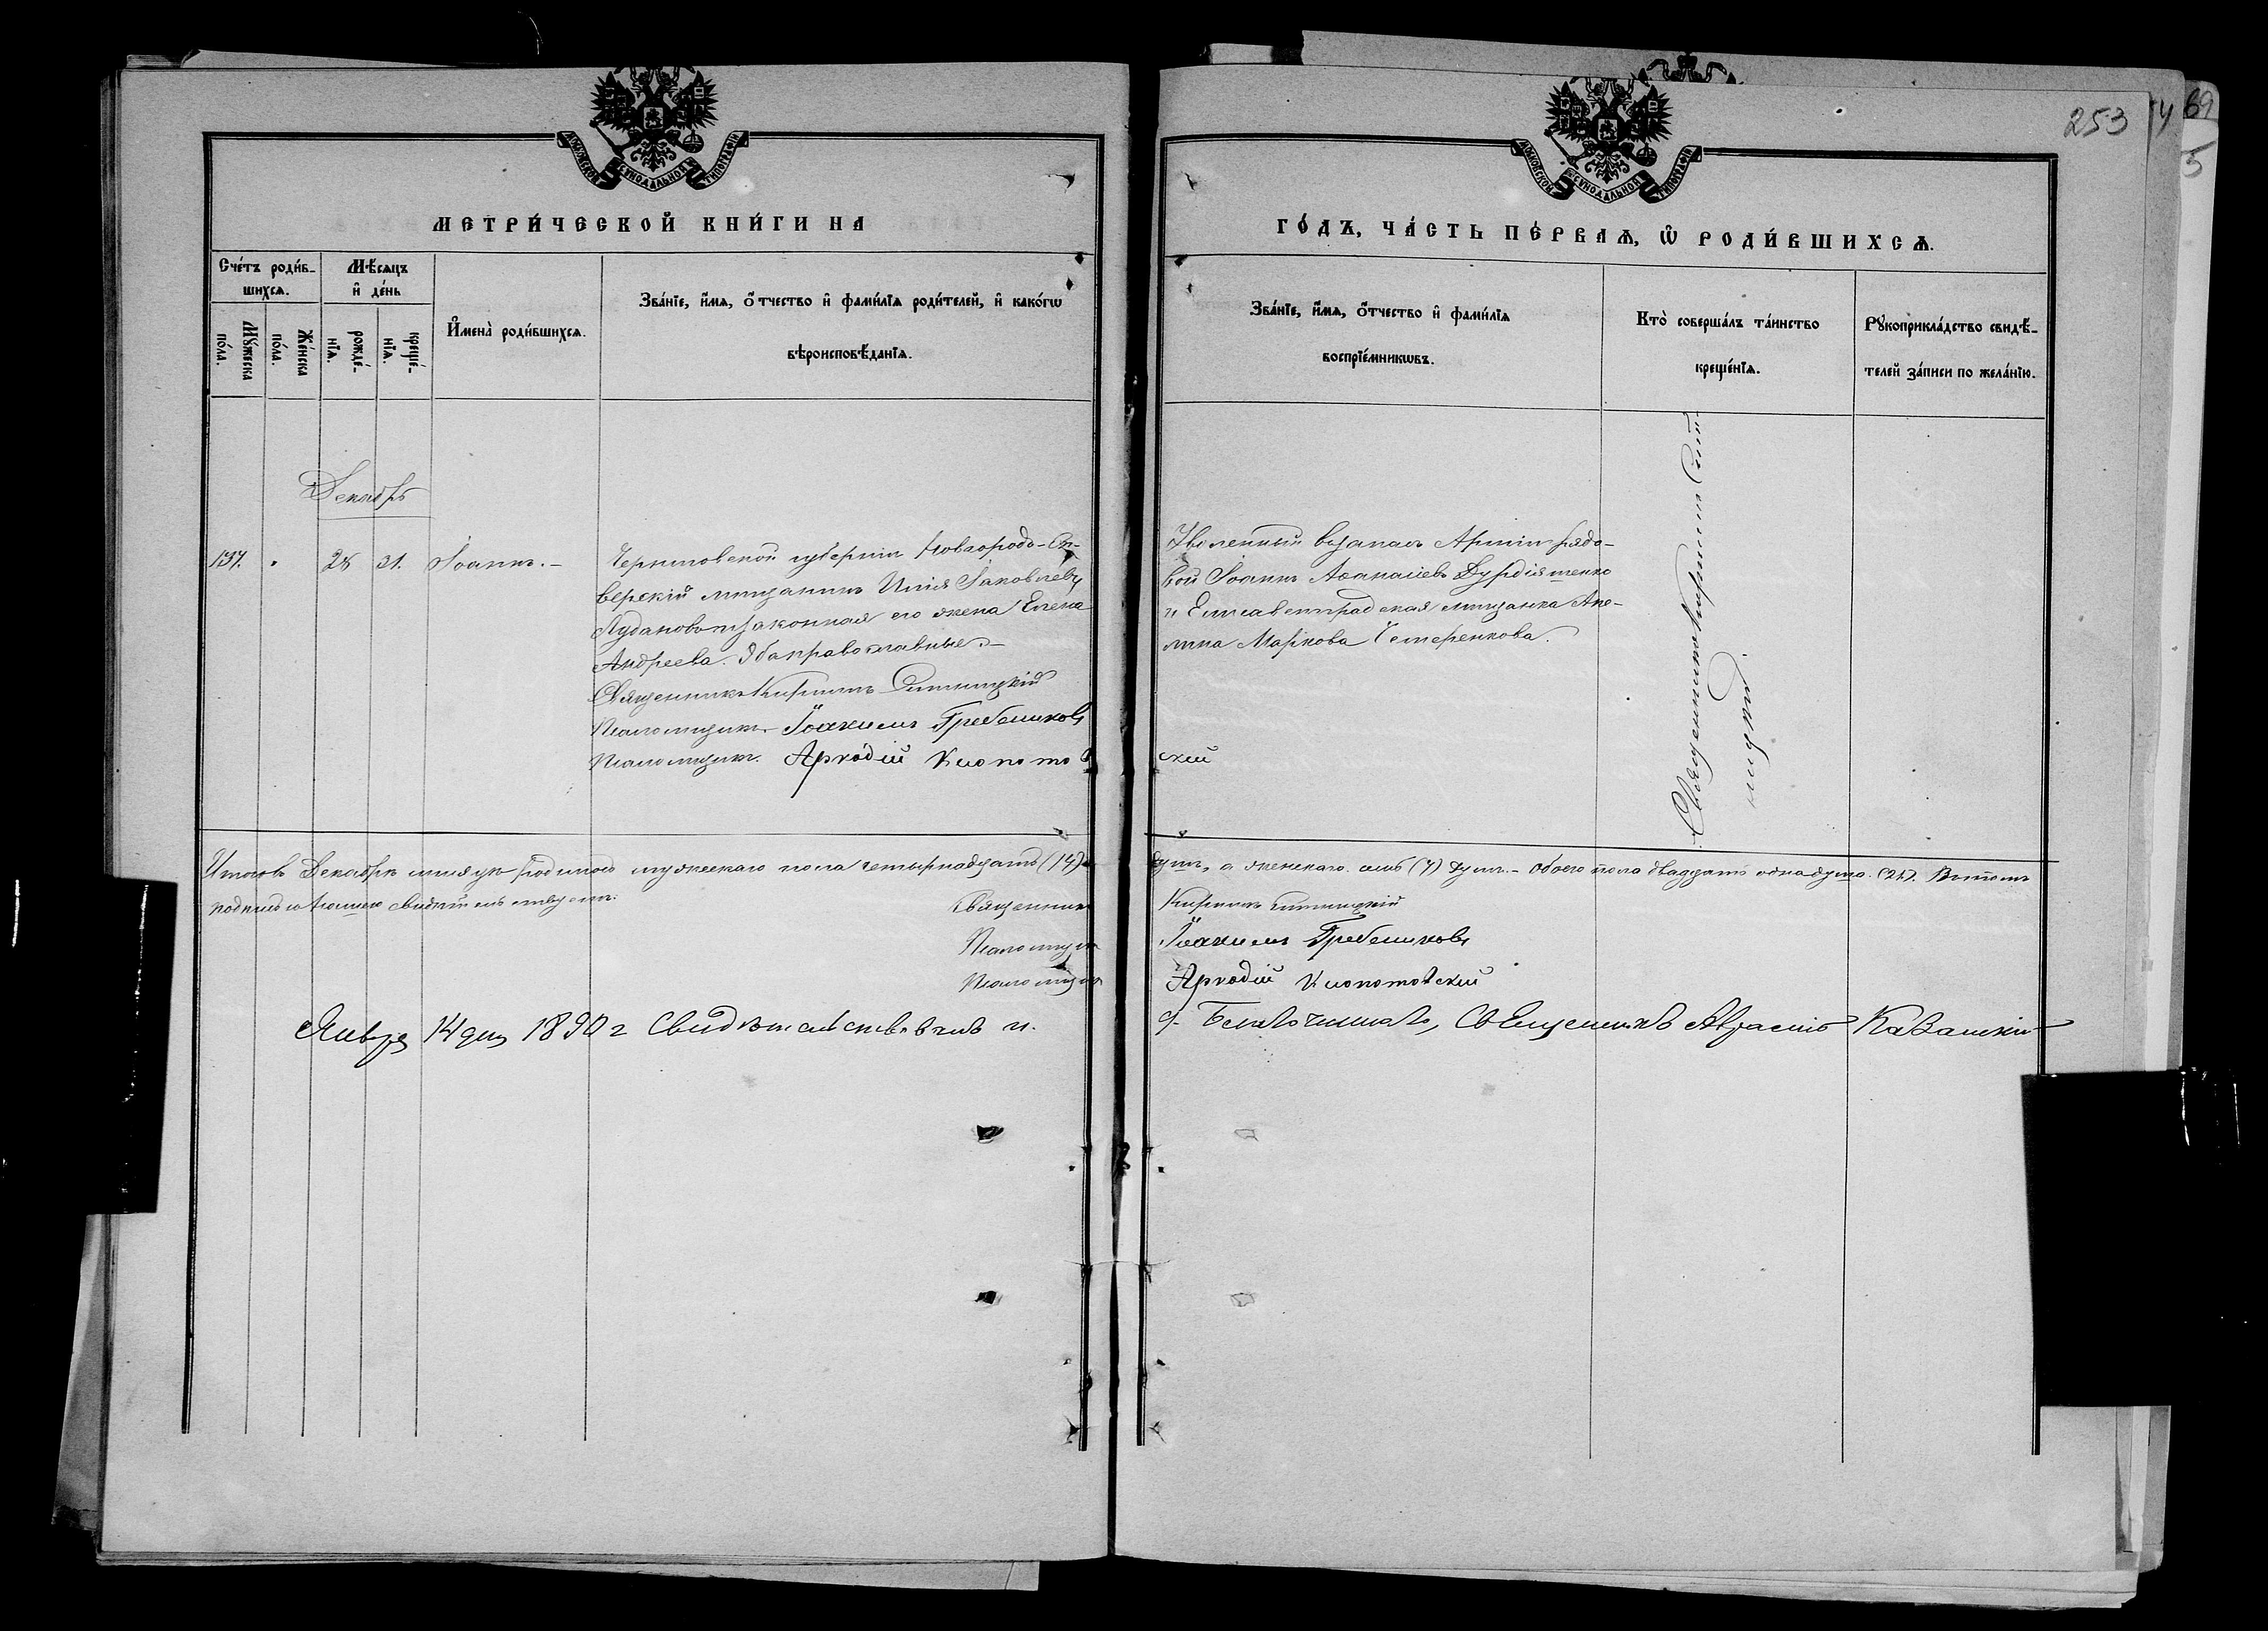 253
МОСКОВСКОЙ СѴНОДАЛЬНОЙ ТИПОГРАФІИ
МОСКОВСКОЙ СѴНОДАЛЬНОЙ ТИПОГРАФІИ
МЕТРИ́ЧЕСКОЙ КНИ́ГИ НА
ГО́ДЪ, ЧА́СТЬ ПЕ́РВАѦ, Ѡ҆ РОДИ́ВШИХСѦ.
Сче́тъ роди́вшихсѧ.
Мꙋ́жеска по́ла.
Же́нска по́ла.
Мѣ́сѧцъ и҆ де́нь
рожде́-
нїѧ.
креще́-
нїѧ.
И҆мена̀ роди́вшихсѧ.
Зва́нїе, и҆́мѧ, ѻ҆́тчество и҆ фами́лїѧ роди́телей, и҆ како́гѡ
вѣроисповѣ́данїѧ.
Зва́нїе, и҆́мѧ, ѻ҆́тчество и҆ фами́лїѧ
воспрїе́мникѡвъ.
Кто̀ соверша́лъ та́инство
креще́нїѧ.
Рꙋкоприкла́дство свидѣ́-
телей за́писи по жела́нїю.
Декабрь
137. 28 31. Іоаннъ. –
Черниговской губерніи Новгородъ-Сѣ-
верскій мѣщанинъ Илія Іаковлевъ
законная его жена Елена
Андреева. Оба православные. –
Священникъ Кириллъ Ситницкій
Псаломщикъ Іоакимъ Гребенниковъ
Псаломщикъ Аркадій Клопотовскій
Уволенный въ запасъ Арміи рядо-
вой Іоаннъ Аѳанасіевъ
и Елисаветградская мѣщанка Аке-
лина Маркова Чемеренкова.
Священникъ Кириллъ Сит-
ницкій
Итого въ Декабрѣ мѣсяцѣ родилось мужескаго пола четырнадцать (14) душъ, а женскаго семь (7) душъ. – Обоего пола двадцать одна душа. (21). Въ томъ
подписью нашею свидѣтельствуемъ:
Священникъ Кириллъ Ситницкій
Псаломщикъ Іоакимъ Гребенниковъ
Псаломщикъ Аркадій Клопотовскій
Января 14 дня 1890 г Свидѣтельствовалъ и. д. Благочиннаго, Священникъ